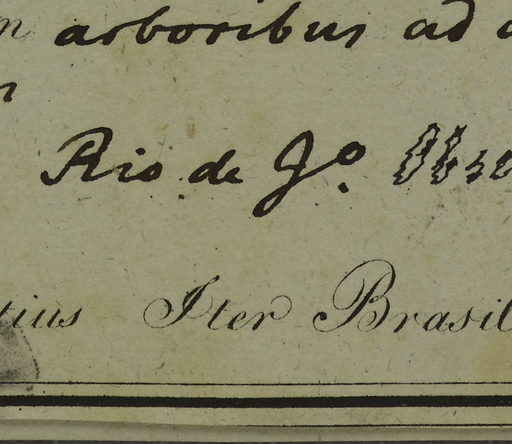 arboribus ad
Rio de Jo.
tius Iter Brasil